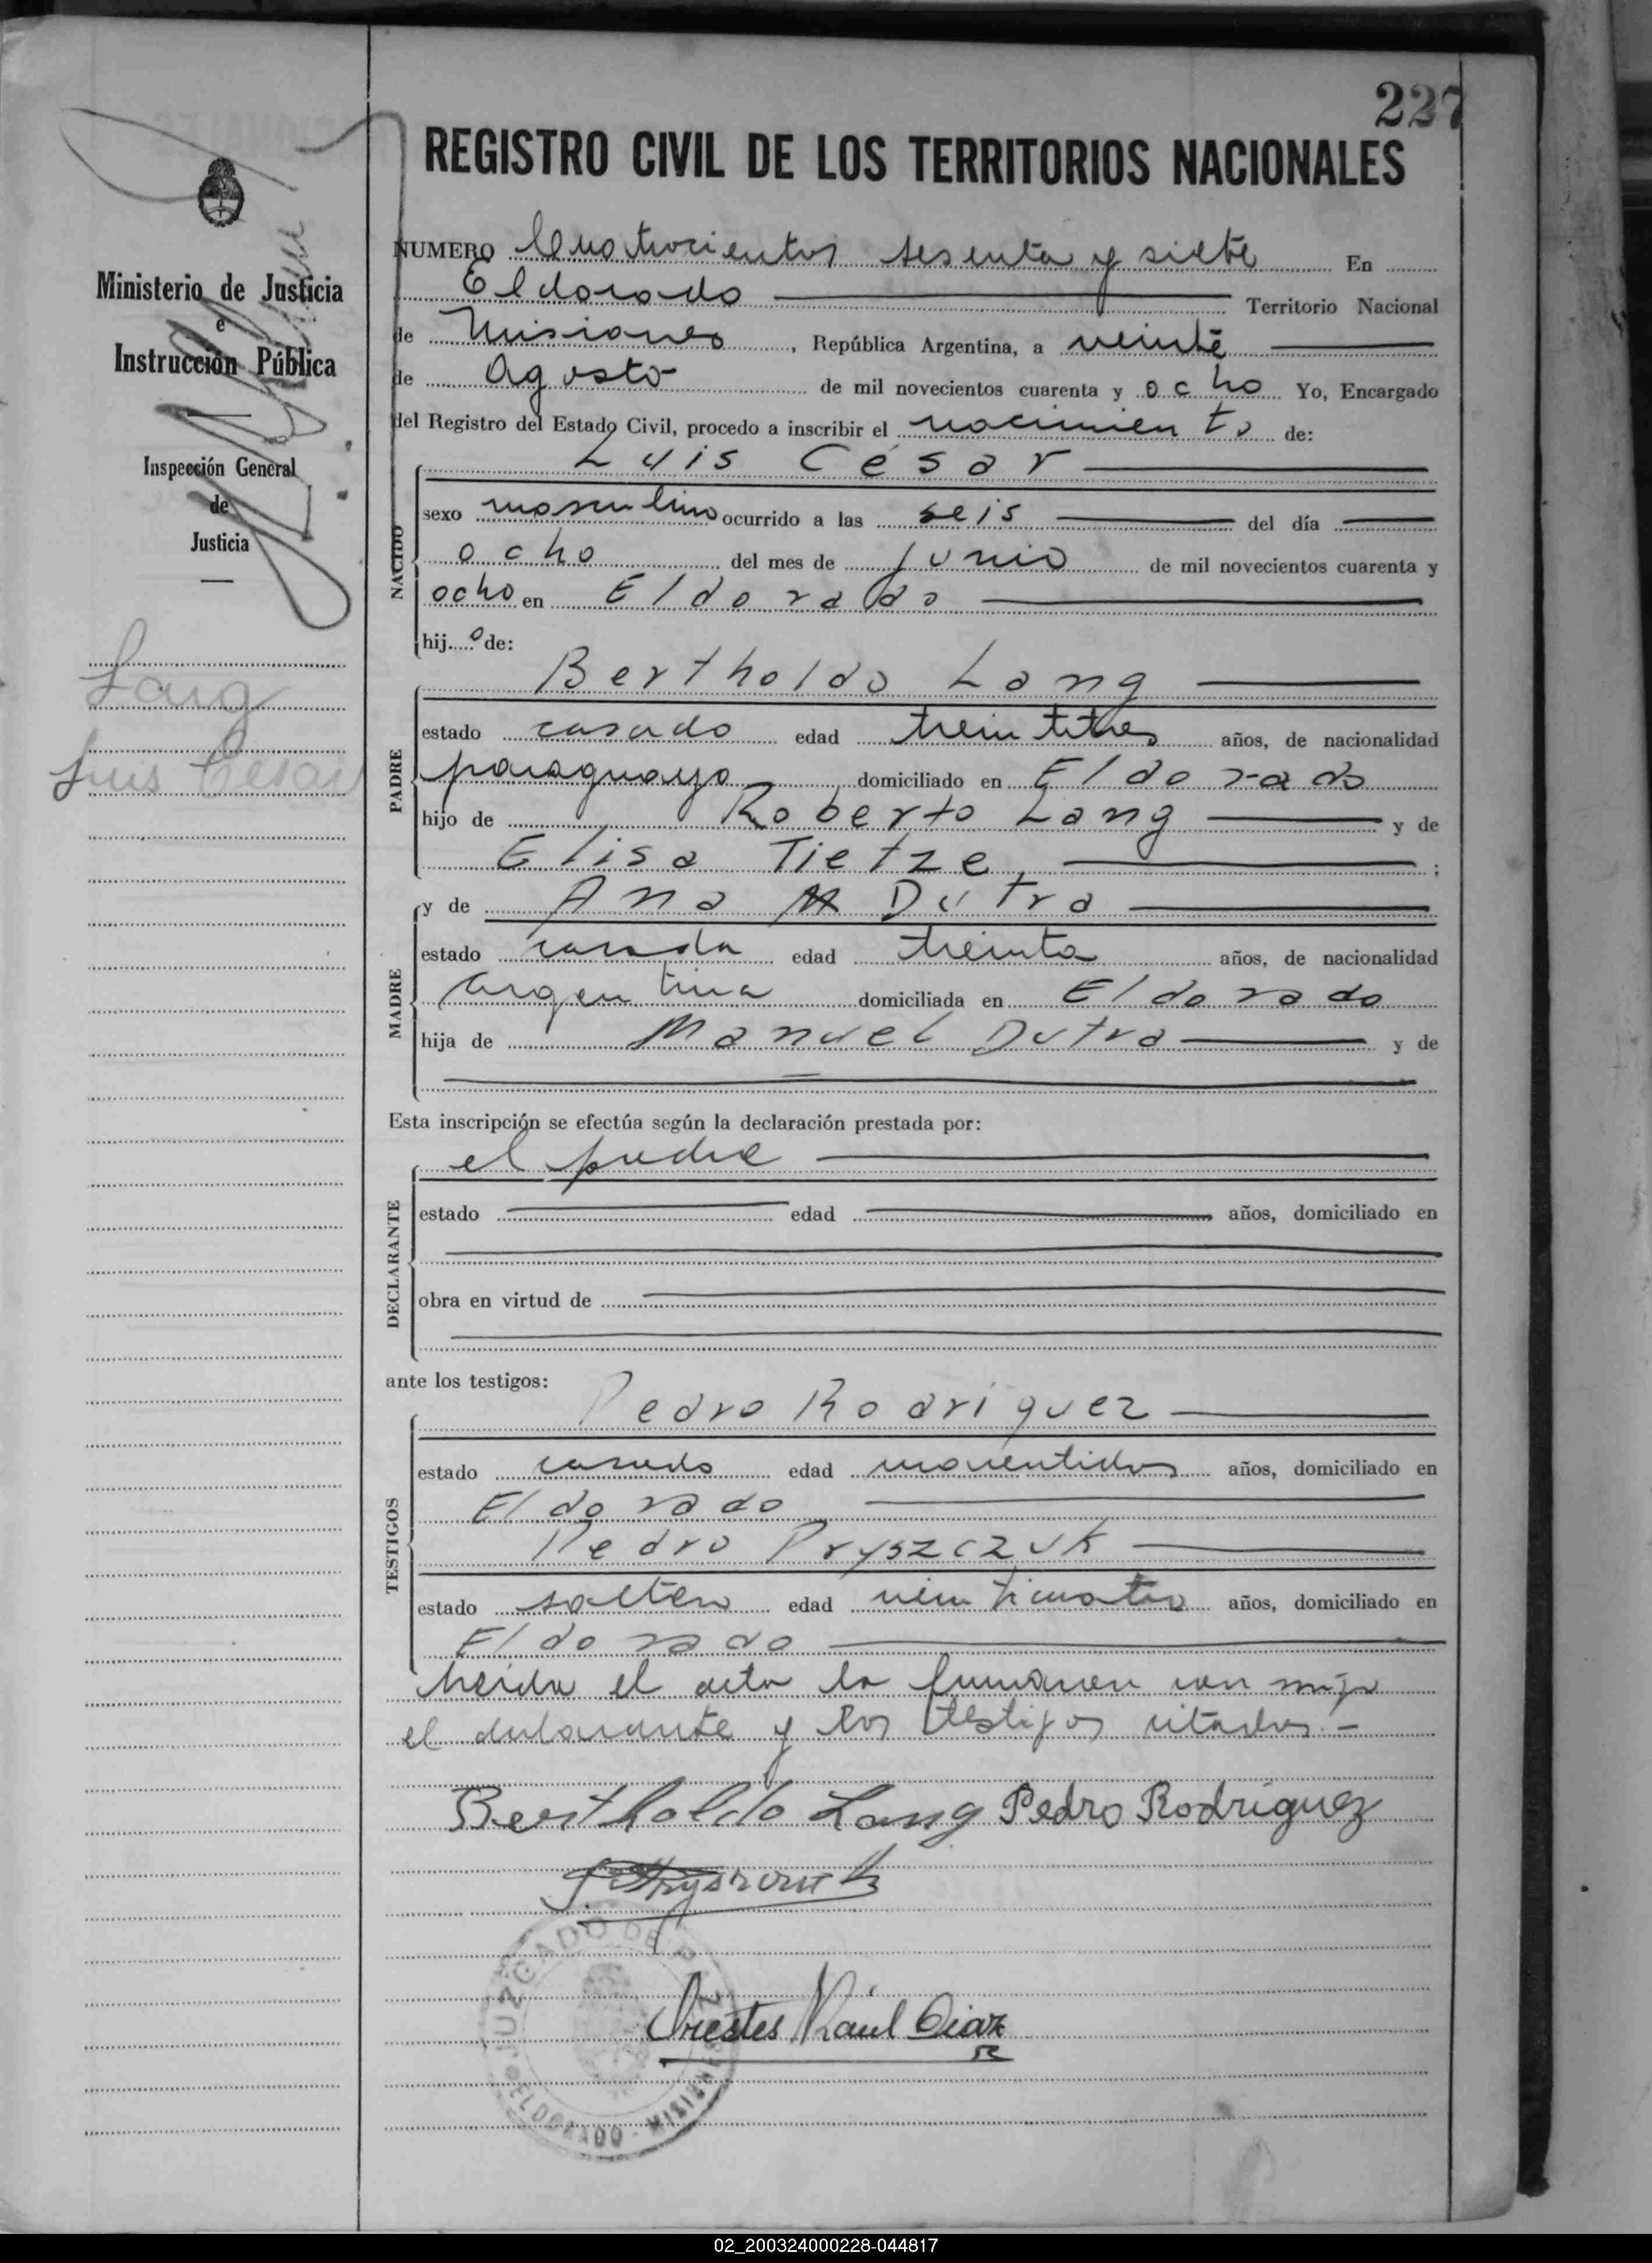 227
REGISTRO CIVIL DE LOS TERRITORIOS NACIONALES
Ministerio de Justicia
e
Instrucción Pública
Inspección General
de
Justicia
Lang
Luis Cesar
NUMERO Cuatrocientos sesenta y siete En
Eldorado Territorio Nacional
de Misiones, República Argentina, a veinte
de Agosto de mil novecientos cuarenta y ocho Yo, Encargado
del Registro del Estado Civil, procedo a inscribir el nacimiento de:
NACIDO
Luis César
sexo masculino ocurrido a las seis del día
ocho del mes de junio de mil novecientos cuarenta y
ocho en Eldorado
hijo de:
PADRE
Bertholdo Lang
estado casado edad treintitres años, de nacionalidad
paraguayo domiciliado en Eldorado
hijo de Roberto Lang y de
Elisa Tietze ;
MADRE
y de Ana Dutra
estado casada edad treinta años, de nacionalidad
argentina domiciliada en Eldorado
hija de Manuel Dutra y de
Esta inscripción se efectúa según la declaración prestada por:
DECLARANTE
el padre
estado edad años, domiciliado en
obra en virtud de
ante los testigos:
TESTIGOS
Pedro Rodriguez
estado casado edad años, domiciliado en
Eldorado
Pedro Pryszczuk
estado soltero edad veinticuatro años, domiciliado en
Eldorado
el acta la firmaron con migo
el declarante y los testigos citados.-
Bertholdo Lang Pedro Rodríguez
Orestes Raúl Diaz
JUZGADO DE PAZ
ELDORADO - MISIONES
02_200324000228-044817